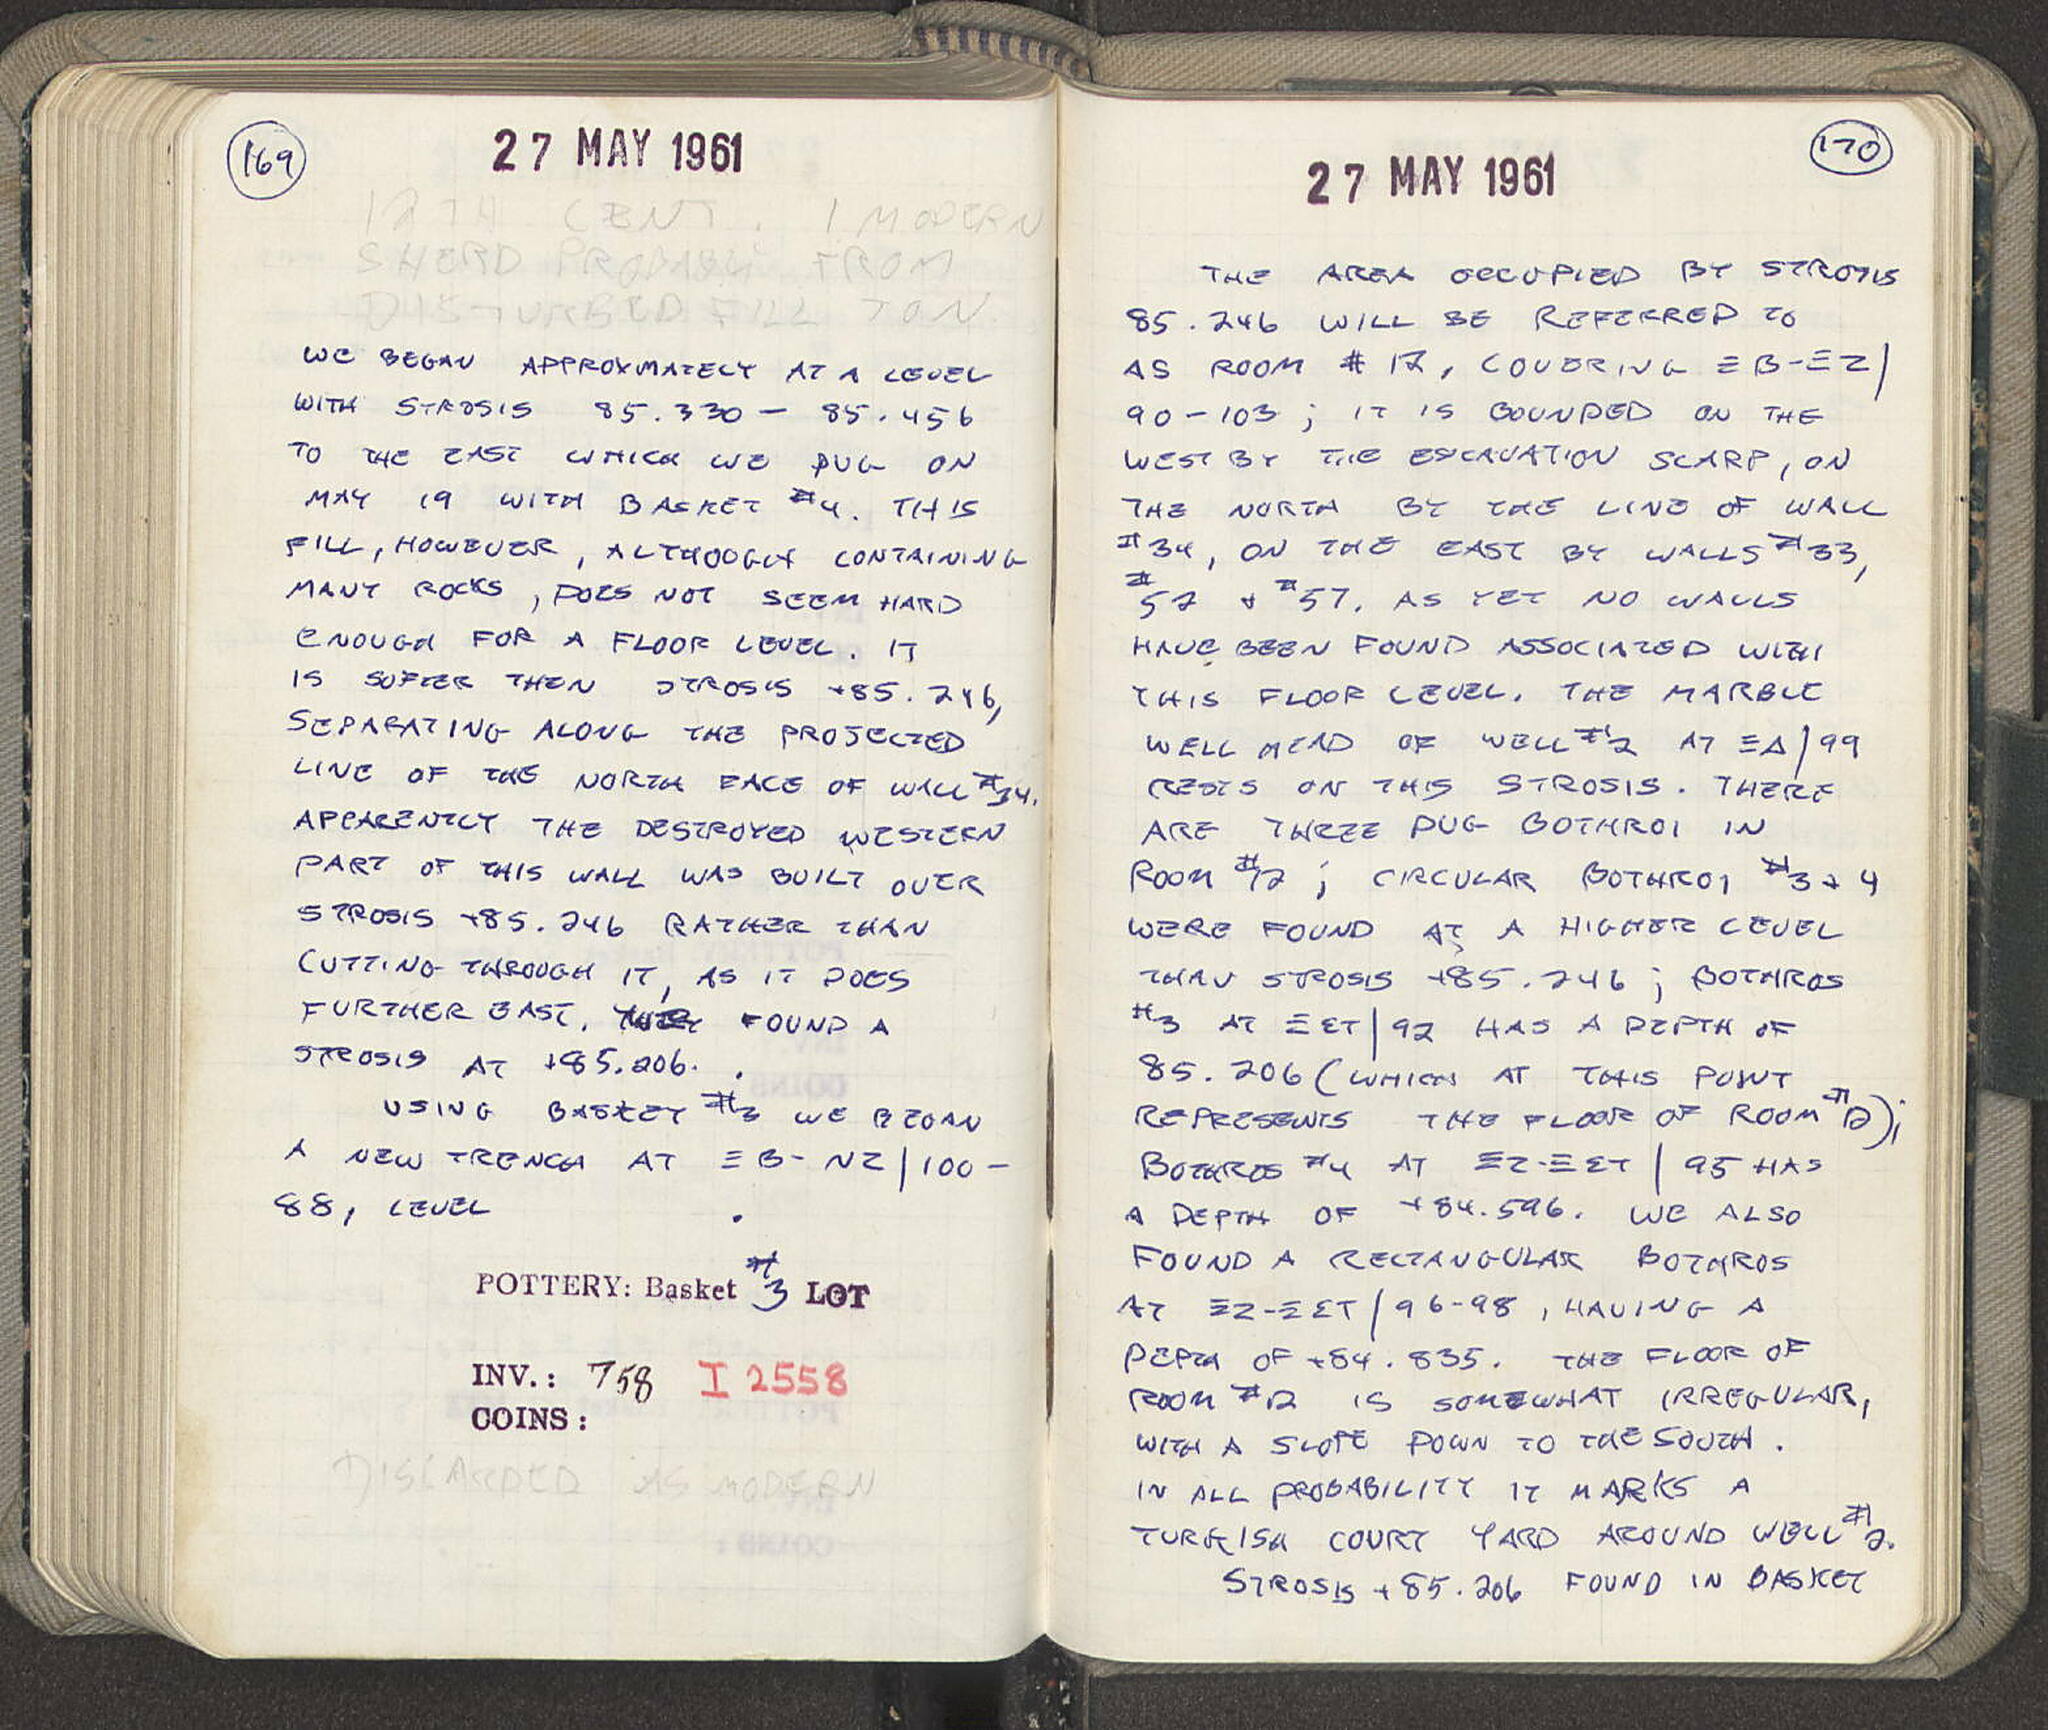 169
27 MAY 1961
12TH CENT. 1 MODERN
SHERD PROBABLY FROM
DISTURBED FILL TON.
WE BEGAN APPROXMATELY AT A LEVEL
WITH STROSIS 85.330 - 85.456
TO THE EAST WHICH WE DUG ON
MAY 19 WITH BASKET #4. THIS
FILL, HOWEVER, ALTHOUGH CONTAINING
MANY ROCKS, DOES NOT SEEM HARD
ENOUGH FOR A FLOOR LEVEL. IT
IS SOFTER THEN STROSIS +85.246,
SEPARATING ALONG THE PROJECTED
LINE OF THE NORTH FACE OF WALL #34.
APPARENTLY THE DESTROYED WESTERN
PART OF THIS WALL WAS BUILT OVER
STROSIS +85.246 RATHER THAN
CUTTING THROUGH IT, AS IT DOES
FURTHER EAST. FOUND A
STROSIS AT +85.206.
USING BASKET #3 WE BEGAN
A NEW TRENCH AT ΞB-NZ/100-
88, LEVEL .
POTTERY: Basket #3 LOT
INV.: 758 I 2558
COINS:
DISCARDED AS MODERN
170
27 MAY 1961
THE AREA OCCUPIED BY STROSIS
85.246 WILL BE REFERRED TO
AS ROOM #12, COVERING ΞB-ΞZ/
90-103; IT IS BOUNDED ON THE
WEST BY THE EXCAVATION SCARP, ON
THE NORTH BY THE LINE OF WALL
#34, ON THE EAST BY WALLS #33,
#52 + #57. AS YET NO WALLS
HAVE BEEN FOUND ASSOCIATED WITH
THIS FLOOR LEVEL. THE MARBLE
WELL HEAD OF WELL #2 AT ΞΔ/99
RESTS ON THIS STROSIS. THERE
ARE THREE DUG BOTHROI IN
ROOM #12; CIRCULAR BOTHROI #3 + 4
WERE FOUND AT A HIGHER LEVEL
THAN STROSIS +85.246; BOTHROS
#3 AT ΞΣΤ/92 HAS A DEPTH OF
85.206 (WHICH AT THIS POINT
REPRESENTS THE FLOOR OF ROOM #12);
BOTHROS #4 AT ΞZ-ΞΣΤ/95 HAS
A DEPTH OF +84.596. WE ALSO
FOUND A RECTANGULAR BOTHROS
AT ΞZ-ΞΣΤ/96-98, HAVING A
DEPTH OF +84.835. THE FLOOR OF
ROOM #12 IS SOMEWHAT IRREGULAR,
WITH A SLOPE DOWN TO THE SOUTH.
IN ALL PROBABILITY IT MARKS A
TURKISH COURT YARD AROUND WELL #2.
STROSIS +85.206 FOUND IN BASKET